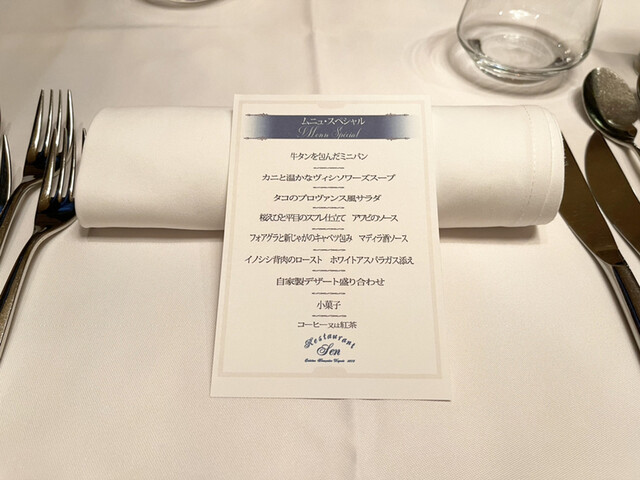 ムニュ・スペシャル
Menu Spécial
牛タンを包んだミニパン
カニと温かなヴィシソワーズスープ
タコのプロヴァンス風サラダ
桜えびと平目のスフレ仕立て　アワビのソース
フォアグラと新じゃがのキャベツ包み　マディラ酒ソース
イノシシ背肉のロースト　ホワイトアスパラガス添え
自家製デザート盛り合わせ
小菓子
コーヒー又は紅茶
Restaurant
Sen